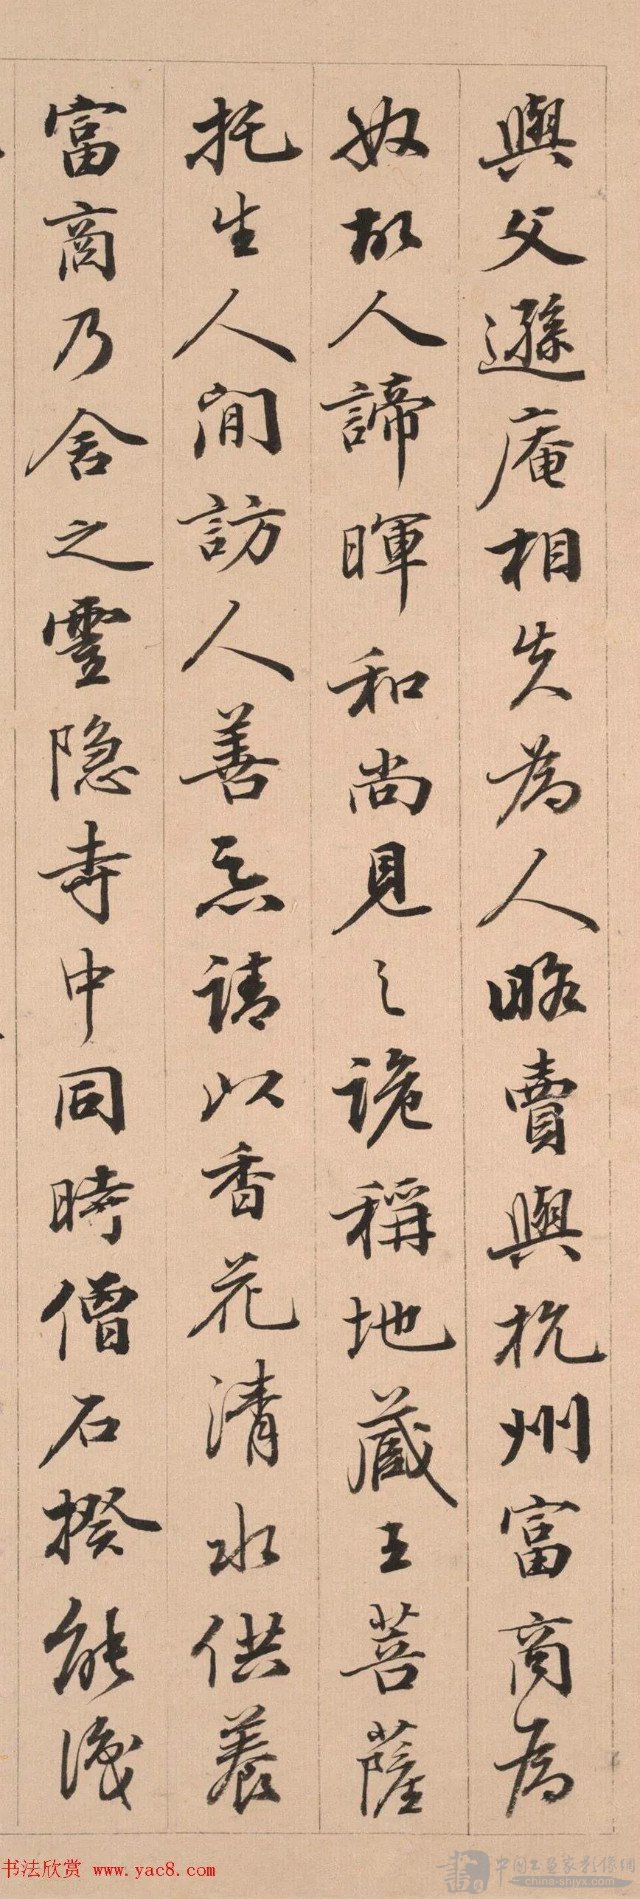 與父遜庵相失為人略賣與杭州富商為
奴故人諦暉和尚見之詭稱地蔵王菩薩
托生人間訪人善惡請以香花清水供養
富商乃舍之靈隐寺中同時僧石揆能識
书法欣赏 www.yac8.com
中国书画家影像網
china-shjyx.com